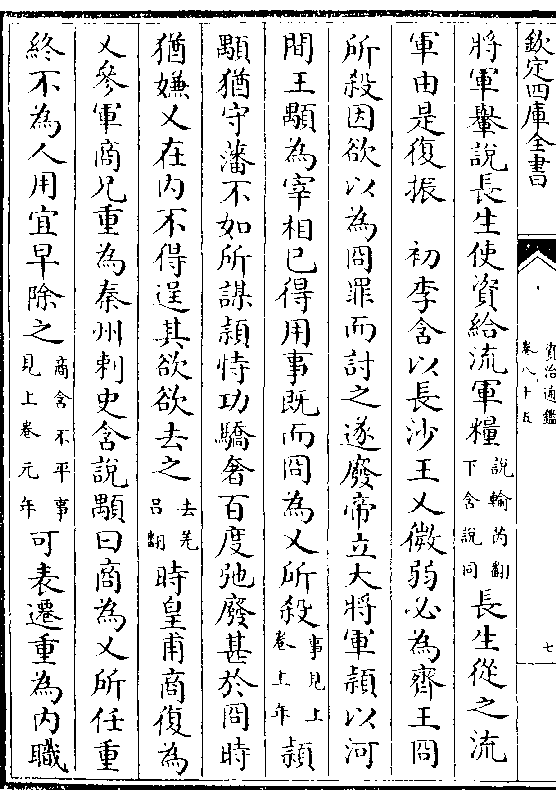 欽定四庫全書
資治通鑑
卷八十五
七
將軍轝說長生使資給流軍糧說輸芮翻下含說同長生從之流
軍由是復振　初李含以長沙王乂微弱必為齊王冏
所殺因欲以為冏罪而討之遂廢帝立大將軍頴以河
間王顒為宰相已得用事既而冏為乂所殺事見上卷上年頴
顒猶守藩不如所謀頴恃功驕奢百度弛廢甚於冏時
猶嫌乂在内不得逞其欲欲去之去羌吕翻時皇甫商復為
乂參軍商兄重為秦州刺史含說顒曰商為乂所任重
終不為人用宜早除之商含不平事見上卷元年可表遷重為内職